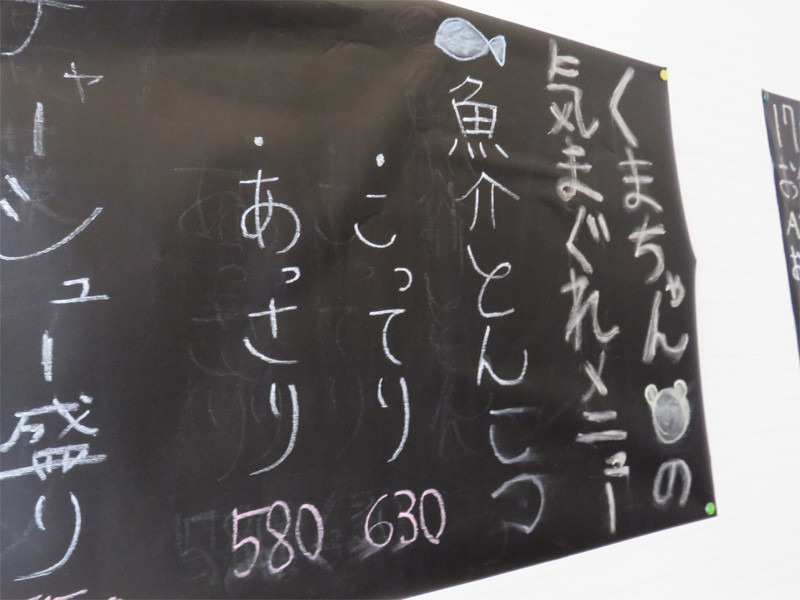 くまちゃんの
気まぐれメニュー
魚介とんこつ
・こってり 630
・あっさり 580
チャーシュー盛り